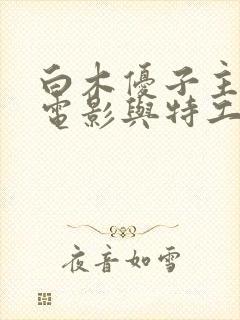 白木優子主
電影與特工
夜音如雪